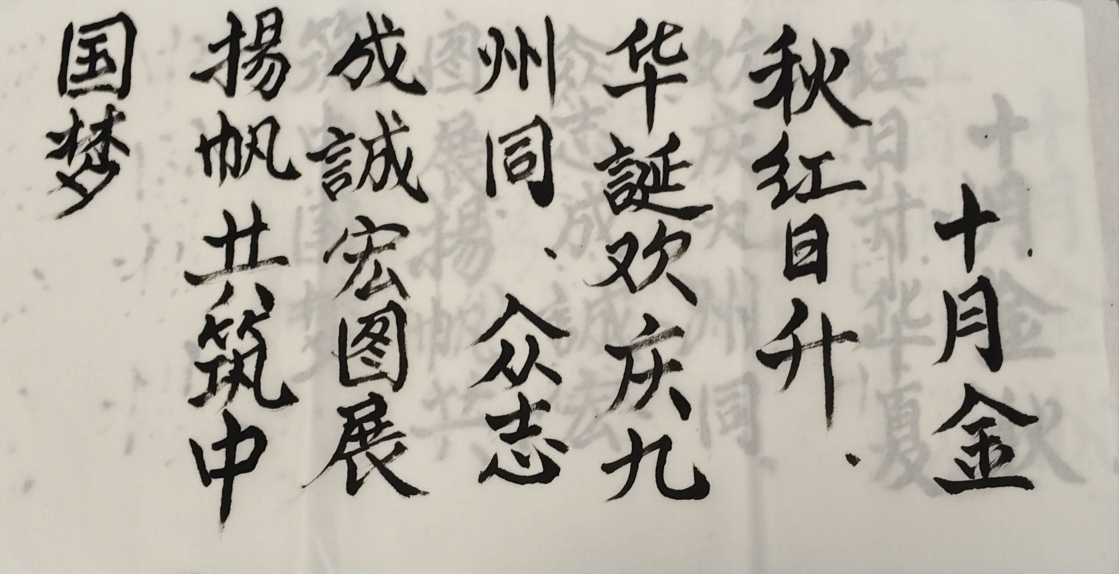 十月金
秋红日升.
华誕欢庆九
州同.众志
成誠宏图展
揚帆共筑中
国梦